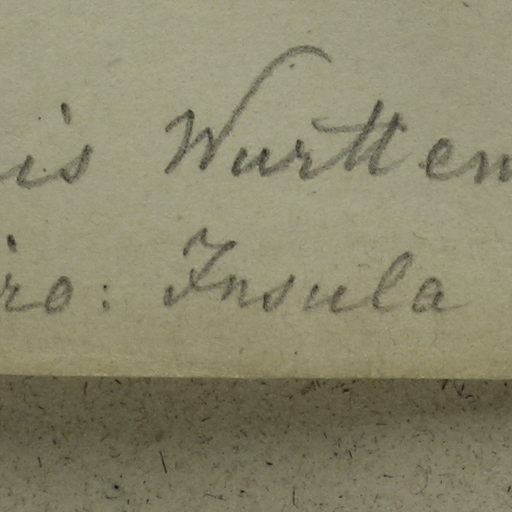 is Wurttem
iro: Insula